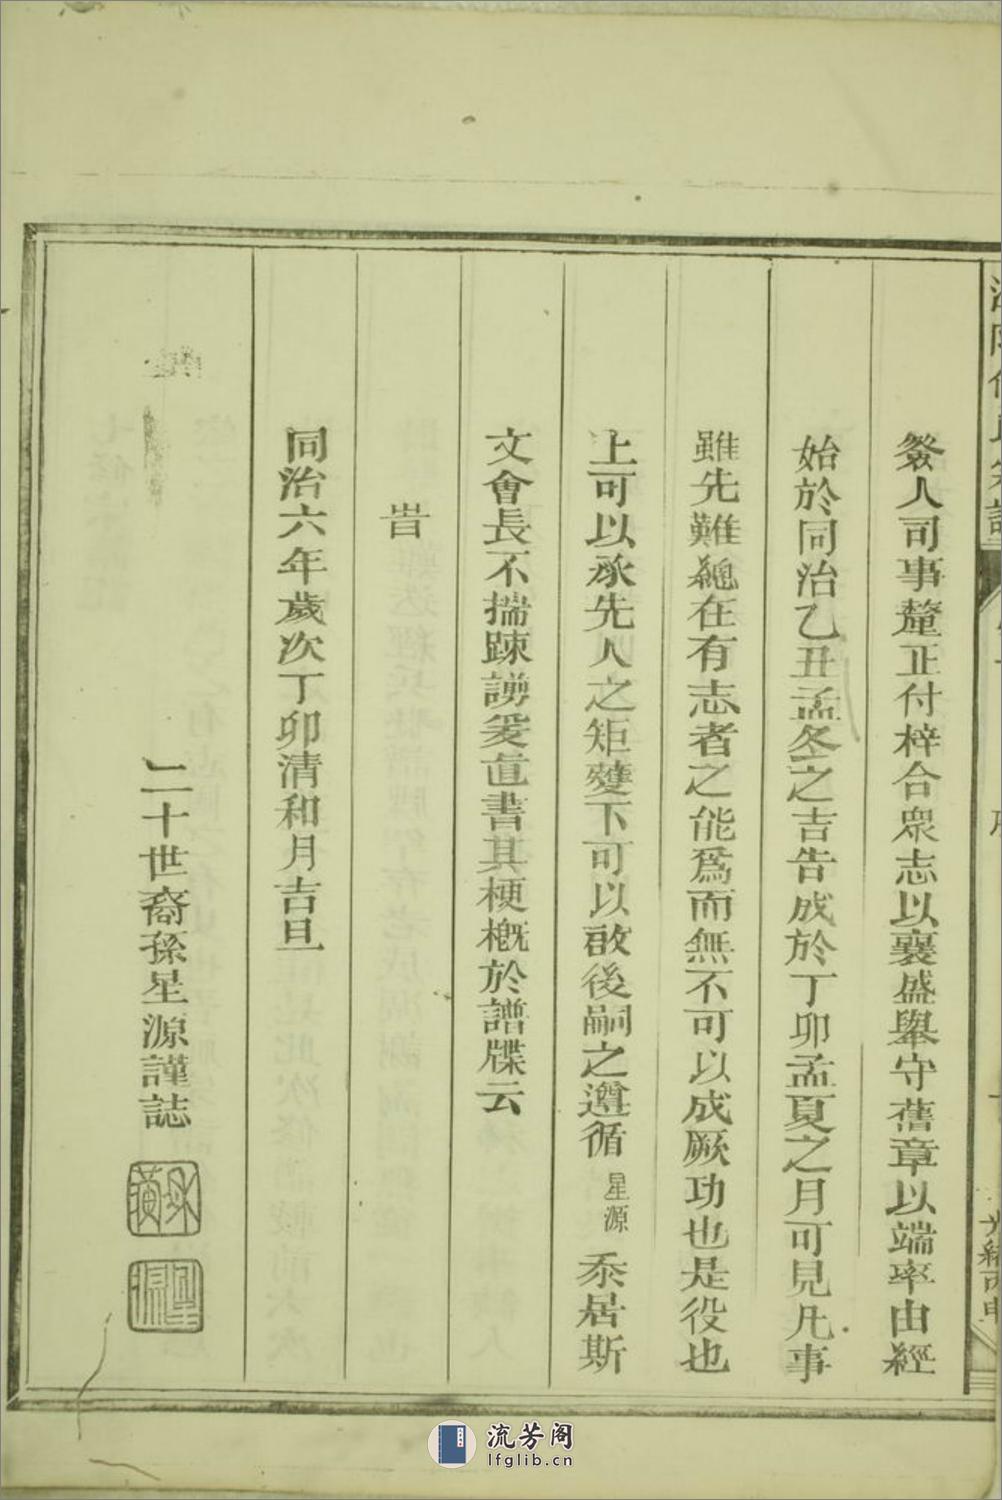 僉人司事釐正付梓合眾志以襄盛舉守舊章以端率由經
始於同治乙丑孟冬之吉告成於丁卯孟夏之月可見凡事
雖先難總在有志者之能爲而無不可以成厥功也是役也
上可以承先人之矩矱下可以啟後嗣之遵循星源忝居斯
文會長不揣踈謭爰直書其梗槪於譜牒云
旹
同治六年歲次丁卯清和月吉旦
二十世裔孫星源謹誌
光緒丙申
流芳阁
lfglib.cn